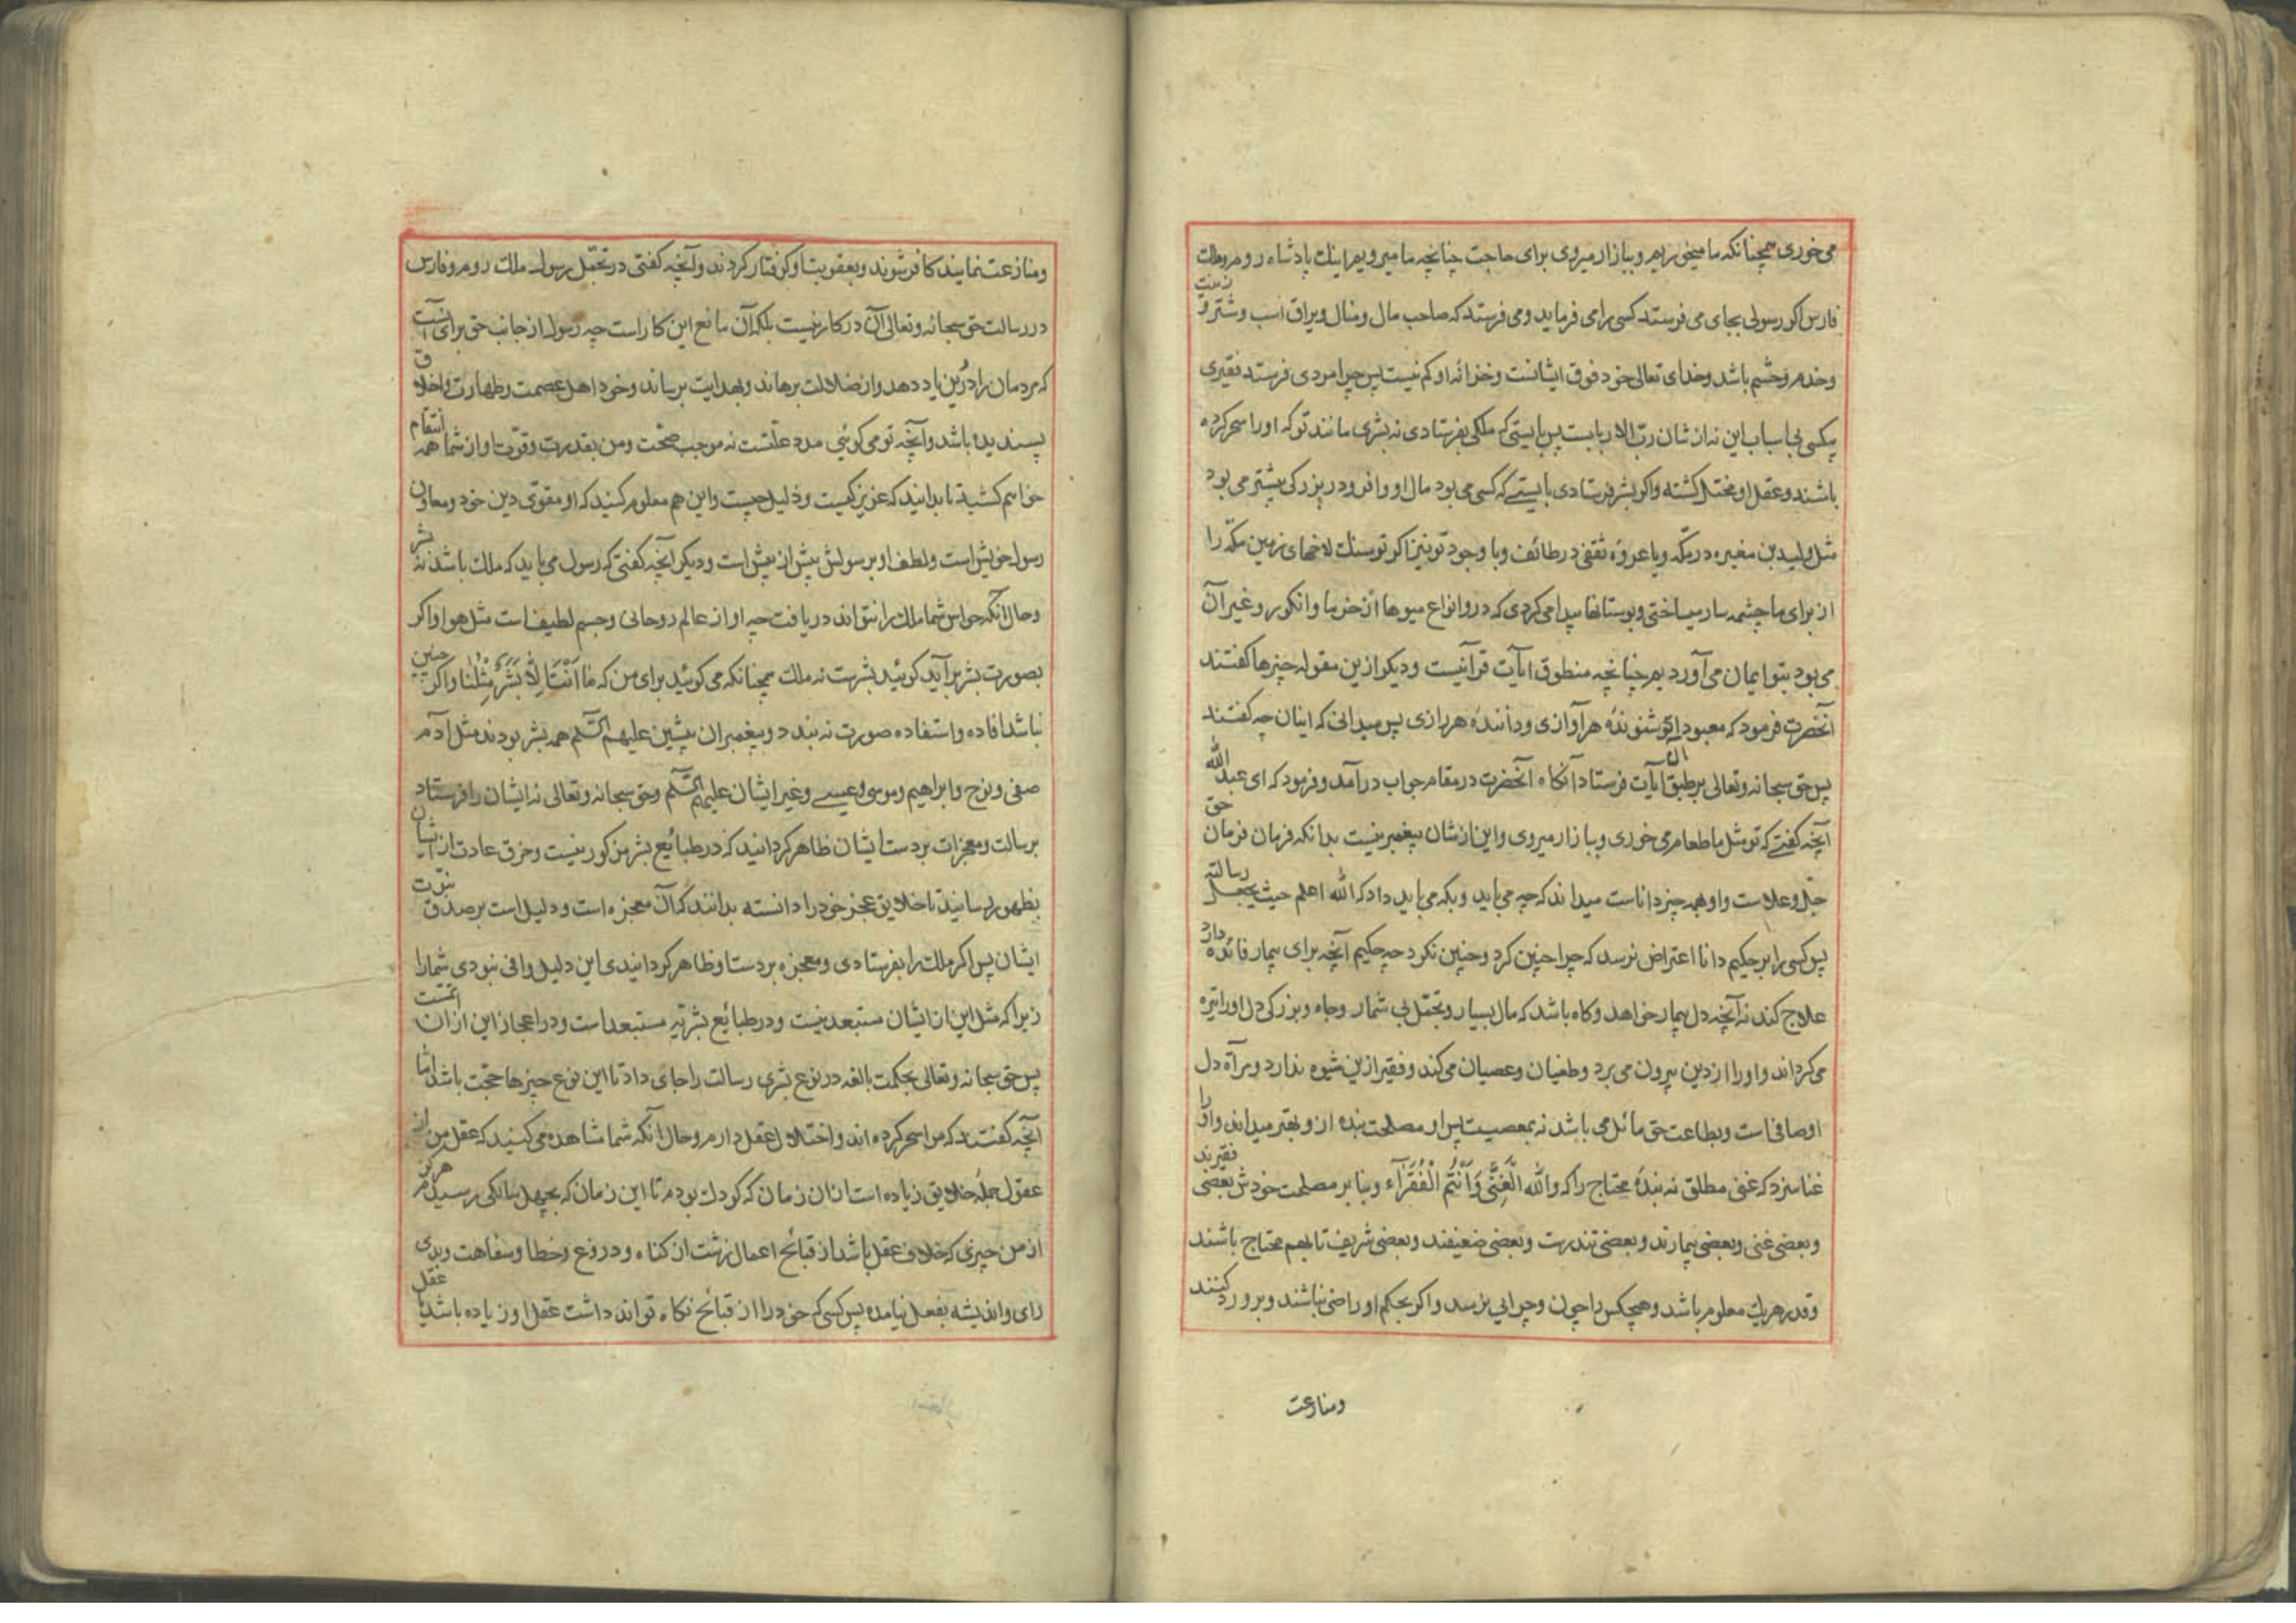 می خوری همچنانکه ما میخوریم و ببازار میروی برای حاجت چنانچه ما میرویم اینک پادشاه روم و ملک
فارس اکر رسولی بجای می فرستد کسی را می فرماید و می فرستد که صاحب مال و منال و یراق اسب و شتر و زینت
و خدم و حشم باشد و خدای تعالی خود فوق ایشانست و خزانه او کم نیست پس چرا مردی فرستد فقیری
بیکسی بی اسباب این نه از شان رب الاربابست پس بایستی که ملکی بفرستادی نه بشری مانند تو که او را سحر کرده
باشند و عقل او مختل کشته و اکر بشر فرستادی بایستے که کسی می بود مال او وافر و در بزرکی بیشتر می بود
مثل ولید بن مغیره در مکّه و یا عروه ثقفی در طائف و با وجود تو نیز اکر تو سنک لاخهای زمین مکّه را
از برای ما چشمه سار میساختی و بوستانها پیدا می کردی که در و انواع میوها از خرما و انکور و غیر آن
می بود بتو ایمان می آوردیم چنانچه منطوق آیات قرآنیست و دیکر ازین مقوله چیزها کفتند
آنحضرت فرمود که معبودا تو شنونده هر آوازی و داننده هر رازی پس میدانی که اینان چه کفتند
پس حق سبحانه و تعالی بر طبق آن آیات فرستاد آنکاه آنحضرت در مقام جواب درآمد و فرمود که ای عبد الله
آنچه کفتے که تو مثل ما طعام می خوری و ببازار میروی و این از شان پیغمبر نیست بدانکه فرمان فرمان حق
جلّ و علاست و او بهمه چیز داناست میداند که چه می باید و بکه می باید داد که الله اعلم حیث یجعل رسالته
پس کسی را بر حکیم دانا اعتراض نرسد که چرا چنین کرد و چنین نکرد چه حکیم آنچه برای بیمار فائده دارد
علاج کند نه آنچه دل بیمار خواهد و کاه باشد که مال بسیار و تجمّل بی شمار و جاه و بزرکی دل او را تیره
می کرداند و او را از دین بیرون می برد و طغیان و عصیان می کند و فقیر ازین شیوه ندارد و مرآة دل
او صافی است و بطاعت حق مائل می باشد نه بمعصیت پس او مصلحت بنده از و بهتر میداند و او را
غنا سزد که غنی مطلق نه بندهٔ محتاج را که والله الْغَنِیُّ وَاَنْتُمُ الْفُقَرَآء و بنا بر مصلحت خودش بعضی فقیرند
و بعضی غنی و بعضی بیمارند و بعضی تندرست و بعضی ضعیفند و بعضی شریف تا بهم محتاج باشند
و قدر هر یک معلوم باشد و هیچکس را چون و چرایی نرسد و اکر بحکم او راضی نباشند و بر و رد کنند
ومنازعت
و منازعت نمایند کافر شوند و بعقوبت او کرفتار کردند و آنچه کفتی در تجمّل رسول ملک روم و فارس
در رسالت حق سبحانه و تعالی آن در کار نیست بلکه آن مانع این کار است چه رسول از جانب حق برای آنست
که مردمان را دین یاد دهد و از ضلالت برهاند و بهدایت برساند و خود اهل عصمت و طهارت و اخلاق
پسندیده باشد و آنچه تو می کوئی مدد علّتست نه موجب صحّت و من بقدرت و قوّت او از شما همه انتقام
خواهم کشید تا بدانید که عزیز کیست و ذلیل چیست و این هم معلوم کنید که او مقوّی دین خود و معاون
رسول خویش است و لطف او بر سولش بیش از بیش است و دیکر آنچه کفتی که رسول می باید که ملک باشد نه بشر
و حال آنکه حواس شما ملک را نتواند دریافت چه او از عالم روحانی و جسم لطیف است مثل هوا و اکر
بصورت بشر برآید کوئید بشرست نه ملک همچنانکه می کوئید برای من که مَا اَنْتَ اِلاَّ بَشَرٌ مِثْلُنَا و اکر چنین
نباشد افاده و استفاده صورت نه بندد و پیغمبران پیشین علیهم السّلم همه بشر بودند مثل آدم
صفی و نوح و ابراهیم و موسی و عیسے و غیر ایشان علیهم السّلم و حق سبحانه و تعالی نه ایشان را فرستاد
برسالت و معجزات بر دست ایشان ظاهر کردانید که در طبائع بشر مرکور نیست و خرق عادت از ایشان
بظهور رسانید تا خلایق عجز خود را دانسته بدانند که آن معجزه است و دلیل است بر صدق نبوّت
ایشان پس اکر ملک را بفرستادی و معجزه بر دست او ظاهر کردانیدی این دلیل وافی نبودی شما را
زیرا که مثل این از ایشان مستبعد نیست و در طبائع بشریّه مستبعد است و در اعجاز این از ان اتمّست
پس حق سبحانه و تعالی بحکمت بالغه در نوع بشری رسالت را جای داد تا این نوع چیزها حجّت باشد امّا
آنچه کفتند که مرا سحر کرده اند و اختلال عقل دارم و حال آنکه شما مشاهده می کنید که عقل من از
عقول جملهٔ خلایق زیاده است ازان زمان که کودک بودم تا این زمان که بچهل سالکی رسیدم هرکز
از من چیزی که خلاف عقل باشد از قبائح اعمال زشت از کناه و دروغ و خطا و سفاهت و بدی
رای و اندیشه بفعل نیامده پس کسی که خود را از قبائح نکاه تواند داشت عقل او زیاده باشد یا عقل